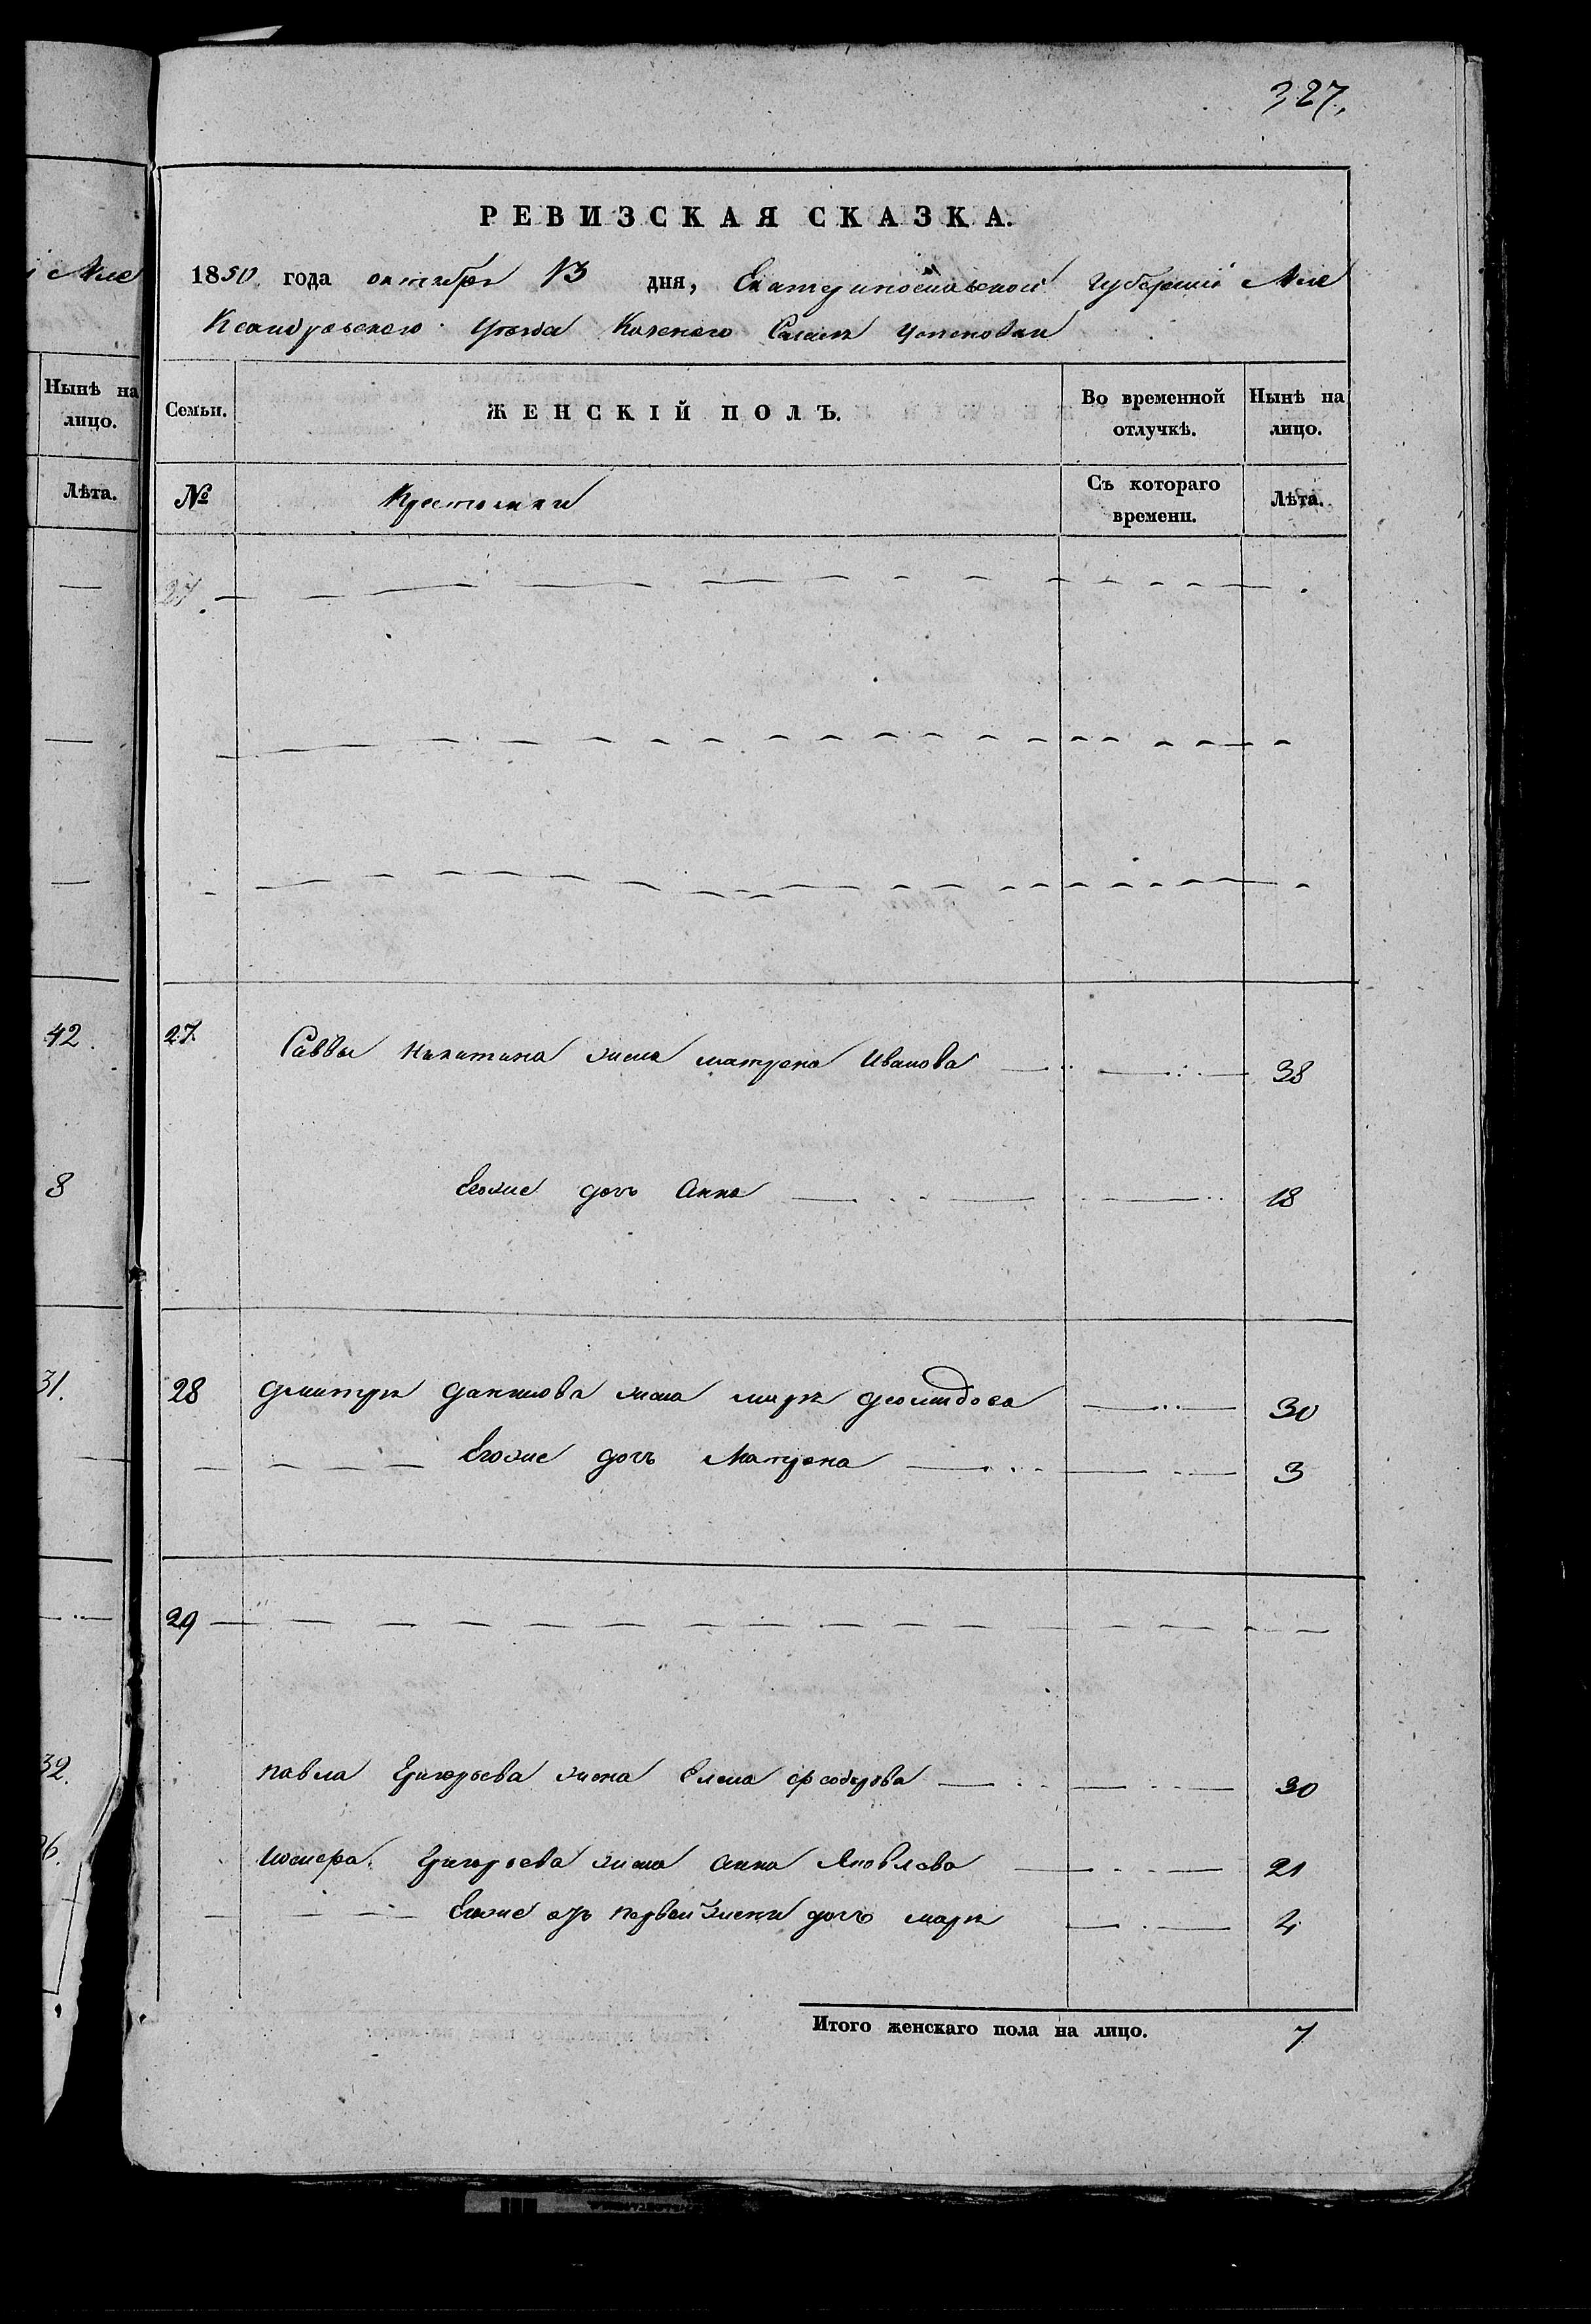 327.
РЕВИЗСКАЯ СКАЗКА.
1850 года октября 13 дня, Екатеринославской губернии Але
ксандровского уезда Казеного Селенія Успеновки
Нынѣ на лицо.
Семьи.
ЖЕНСКІЙ ПОЛЪ.
Во временной отлучкѣ.
Нынѣ на лицо.
Лѣта.
№
Крестьянки
Съ котораго времени.
Лѣта.
42. 27. Саввы Никитина жена матрена Иванова 38
8 Егоже дочь Анна 18
31. 28 Дмитрия данилова жена мария 30
Егоже дочь Матрена 3
29
32. павла Григорьева жена Елена федорова 30
Григорьева жена анна Яковлева 21
Егоже отъ первой жены дочь мария 4
Итого женскаго пола на лицо. 7